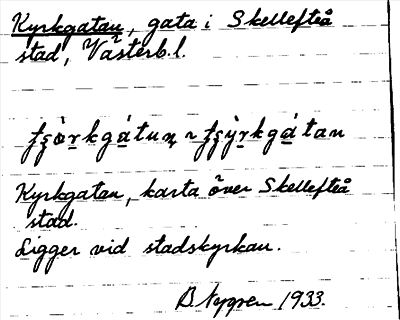 Kyrkgatan, gata i Skellefteå
stad, Västerb.l.
Kyrkgatan, karta över Skellefteå
stad.
Ligger vid stadskyrkan.
B. Nygren 1933.